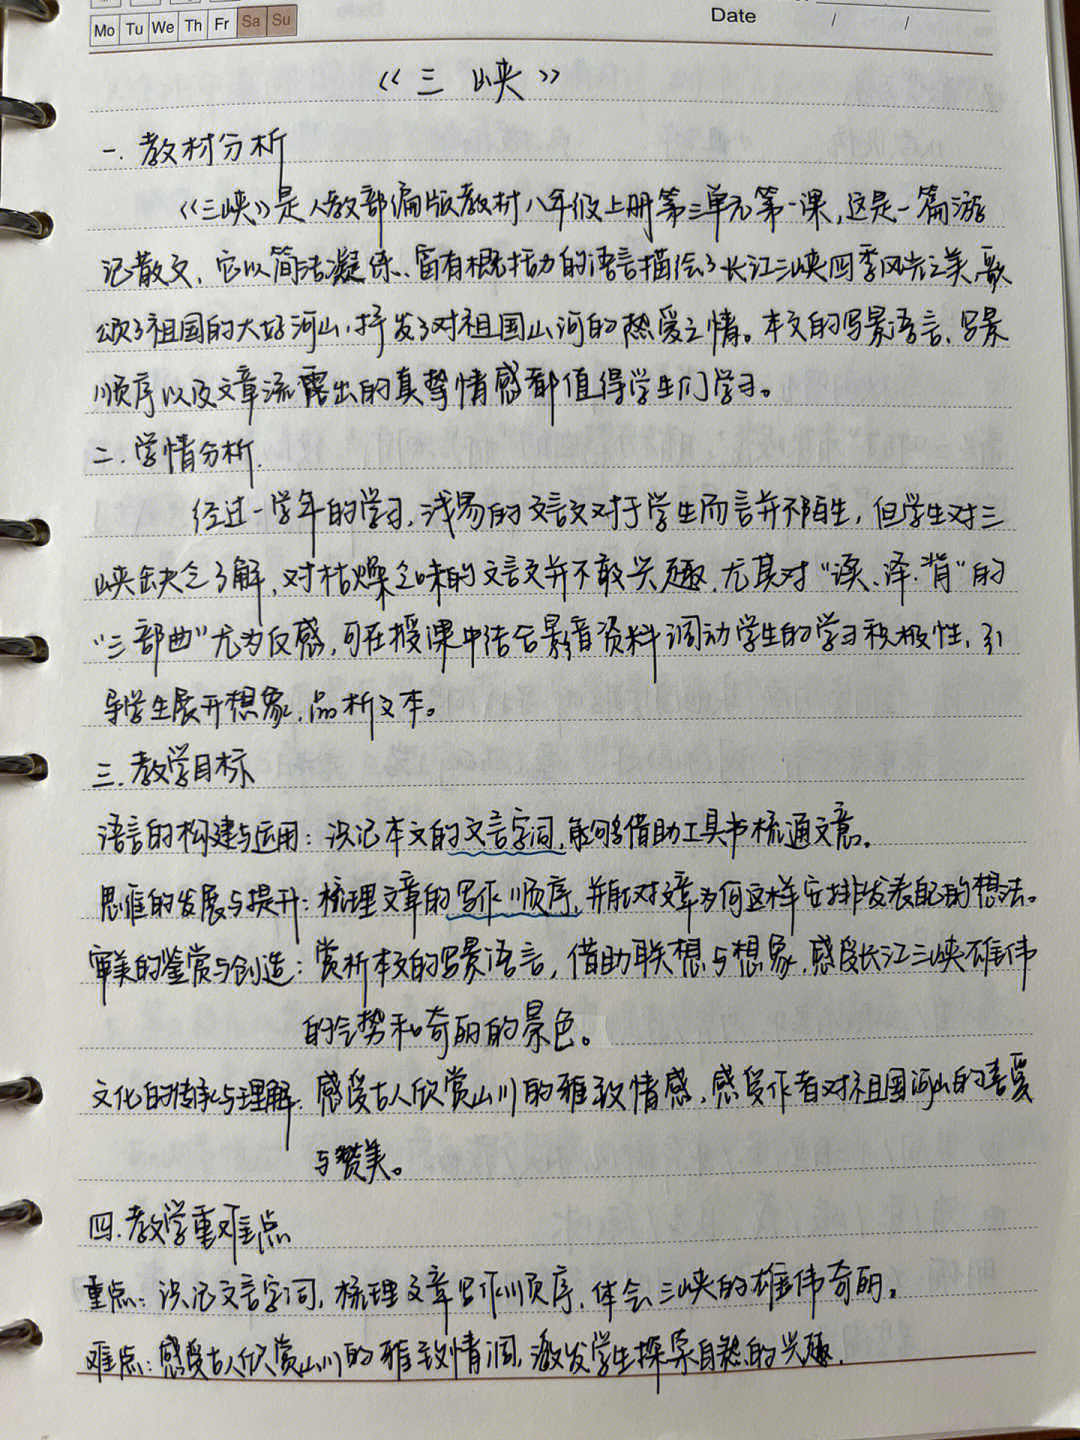 Mo Tu We Th Fr Sa Su
Date / /
《三 峡》
一.教材分析
《三峡》是人教部编版教材八年级上册第三单元第一课,这是一篇游
记散文,它以简洁凝练、富有概括力的语言描绘了长江三峡四季风光之美,歌
颂了祖国的大好河山,抒发了对祖国山河的热爱之情。本文的写景语言、写景
顺序以及文章流露出的真挚情感都值得学生们学习。
二.学情分析.
经过一学年的学习,浅易的文言文对于学生而言并不陌生,但学生对三
峡缺乏了解,对枯燥乏味的文言文并不敢兴趣,尤其对“读、译、背”的
“三部曲”尤为反感,可在授课中结合影音资料调动学生的学习积极性,引
导学生展开想象,品析文本。
三.教学目标
语言的构建与运用:识记本文的文言字词,能够借助工具书梳通文意。
思维的发展与提升:梳理文章的写作顺序,并能对文章为何这样安排发表自己的想法。
审美的鉴赏与创造:赏析本文的写景语言,借助联想与想象,感受长江三峡雄伟
的气势和奇丽的景色。
文化的传承与理解:感受古人欣赏山川的雅致情感,感受作者对祖国河山的喜爱
与赞美。
四.教学重难点
重点:识记文言字词,梳理文章写作顺序,体会三峡的雄伟奇丽。
难点:感受古人欣赏山川的雅致情调,激发学生探索自然的兴趣.